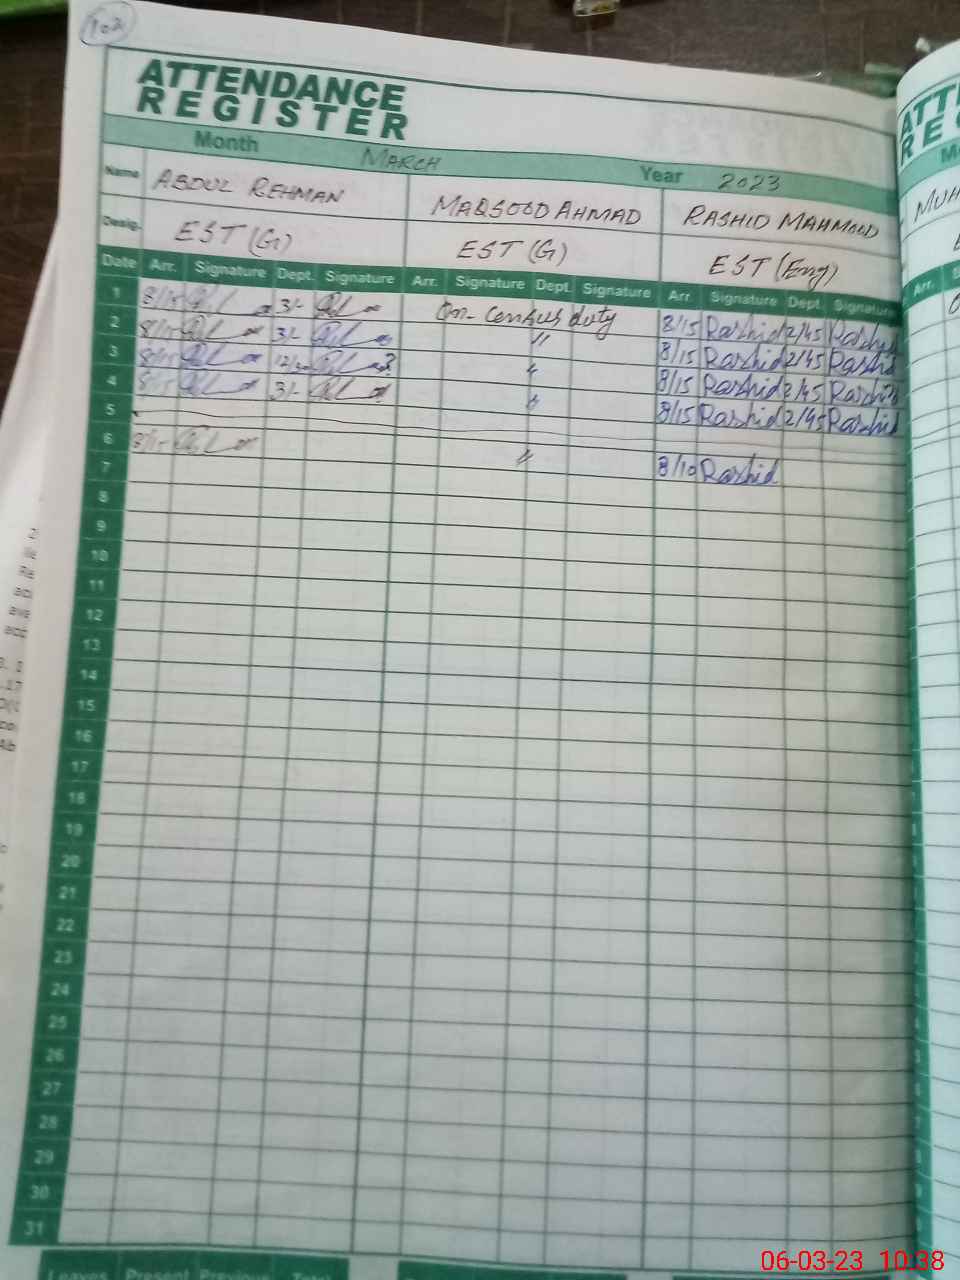 102
ATTENDANCE
REGISTER
ATT
RE
Month MARCH Year 2023
Name ABDUL REHMAN MAQSOOD AHMAD RASHID MAHMOOD MUH
Desig. EST (G) EST (G) EST (Eng)
Date Arr. Signature Dept. Signature Arr. Signature Dept. Signature Arr. Signature Dept. Signature Arr.
1 8/15 3/- On census duty 8/15 Rashid 2/45 Rashid
2 8/15 3/- " 8/15 Rashid 2/45 Rashid
3 8/15 " 8/15 Rashid 2/45 Rashid
4 8/15 3/- " 8/15 Rashid 2/45 Rashid
5
6 8/15 " 8/10 Rashid
7
8
9
10
11
12
13
14
15
16
17
18
19
20
21
22
23
24
25
26
27
28
29
30
31
06-03-23 10:38